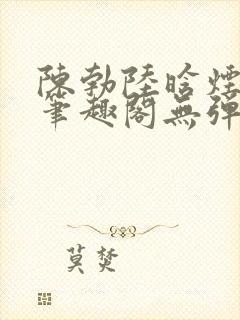 陳勃陸晗煙
筆趣閣無彈
莫焚